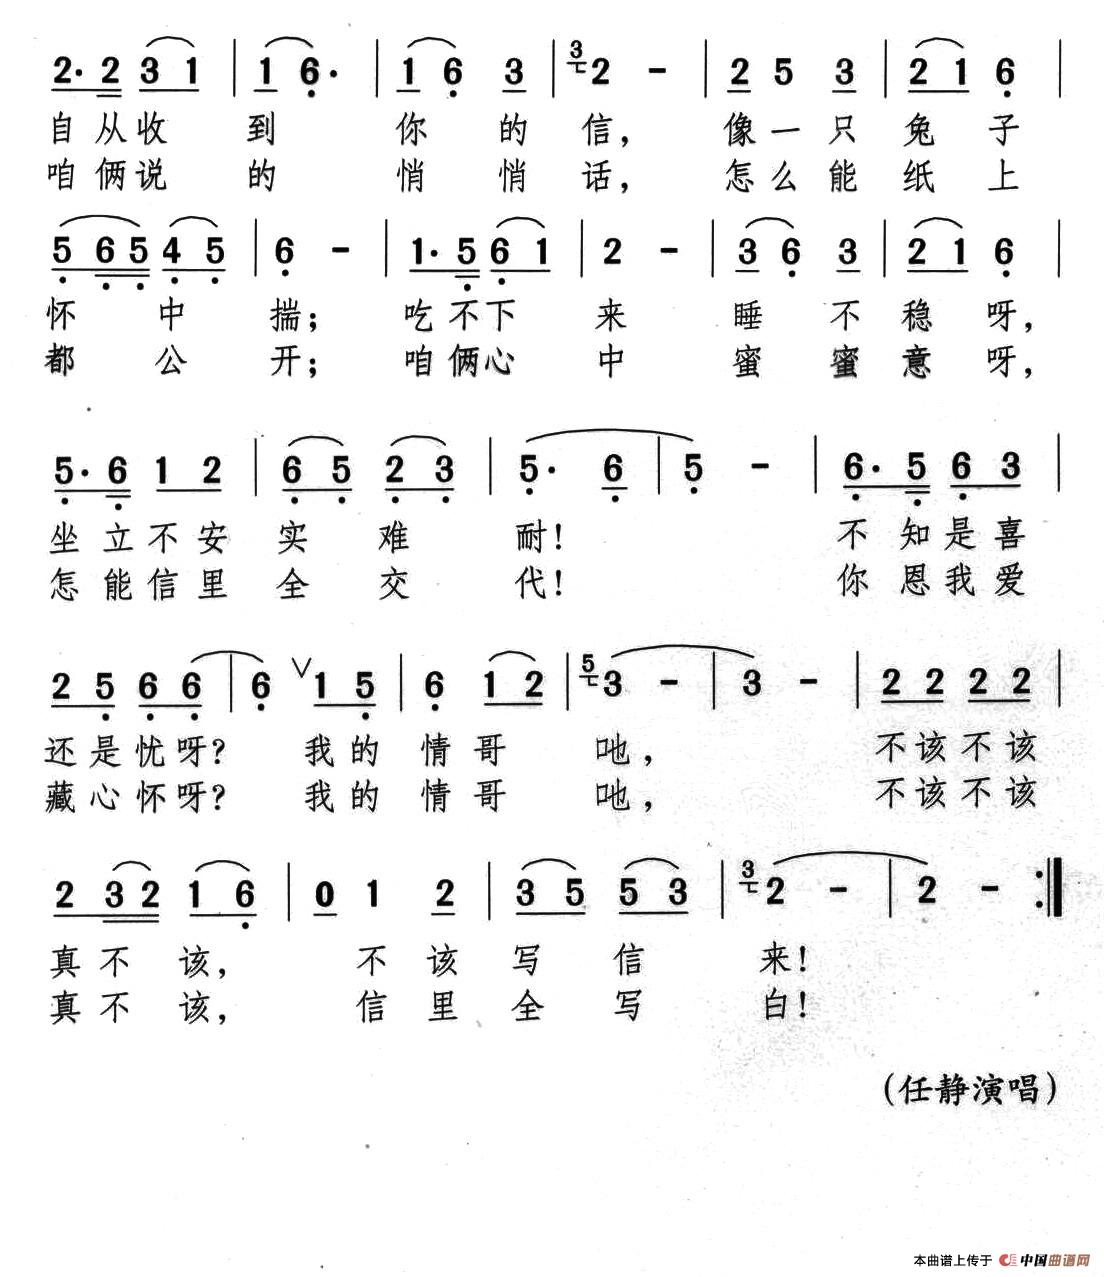 2· 2 3 1 | 1 6· | 1 6 3 | 3 2 - | 2 5 3 | 2 1 6 |
自从收 到 你 的 信， 像一只兔 子
咱俩说 的 悄 悄 话， 怎么能纸 上
5 6 5 4 5 | 6 - | 1· 5 6 1 | 2 - | 3 6 3 | 2 1 6 |
怀 中 揣； 吃不下 来 睡 不 稳 呀，
都 公 开； 咱俩心 中 蜜 蜜 意 呀，
5· 6 1 2 | 6 5 2 3 | 5· 6 | 5 - | 6· 5 6 3 |
坐立不安 实 难 耐！ 不知是喜
怎能信里 全 交 代！ 你恩我爱
2 5 6 6 | 6 ∨ 1 5 | 6 1 2 | 5 3 - | 3 - | 2 2 2 2 |
还是忧呀？ 我的 情哥 吔， 不该不该
藏心怀呀？ 我的 情哥 吔， 不该不该
2 3 2 1 6 | 0 1 2 | 3 5 5 3 | 3 2 - | 2 - :|
真不 该， 不 该 写 信 来！
真不 该， 信 里 全 写 白！
（任静演唱）
本曲谱上传于 中国曲谱网